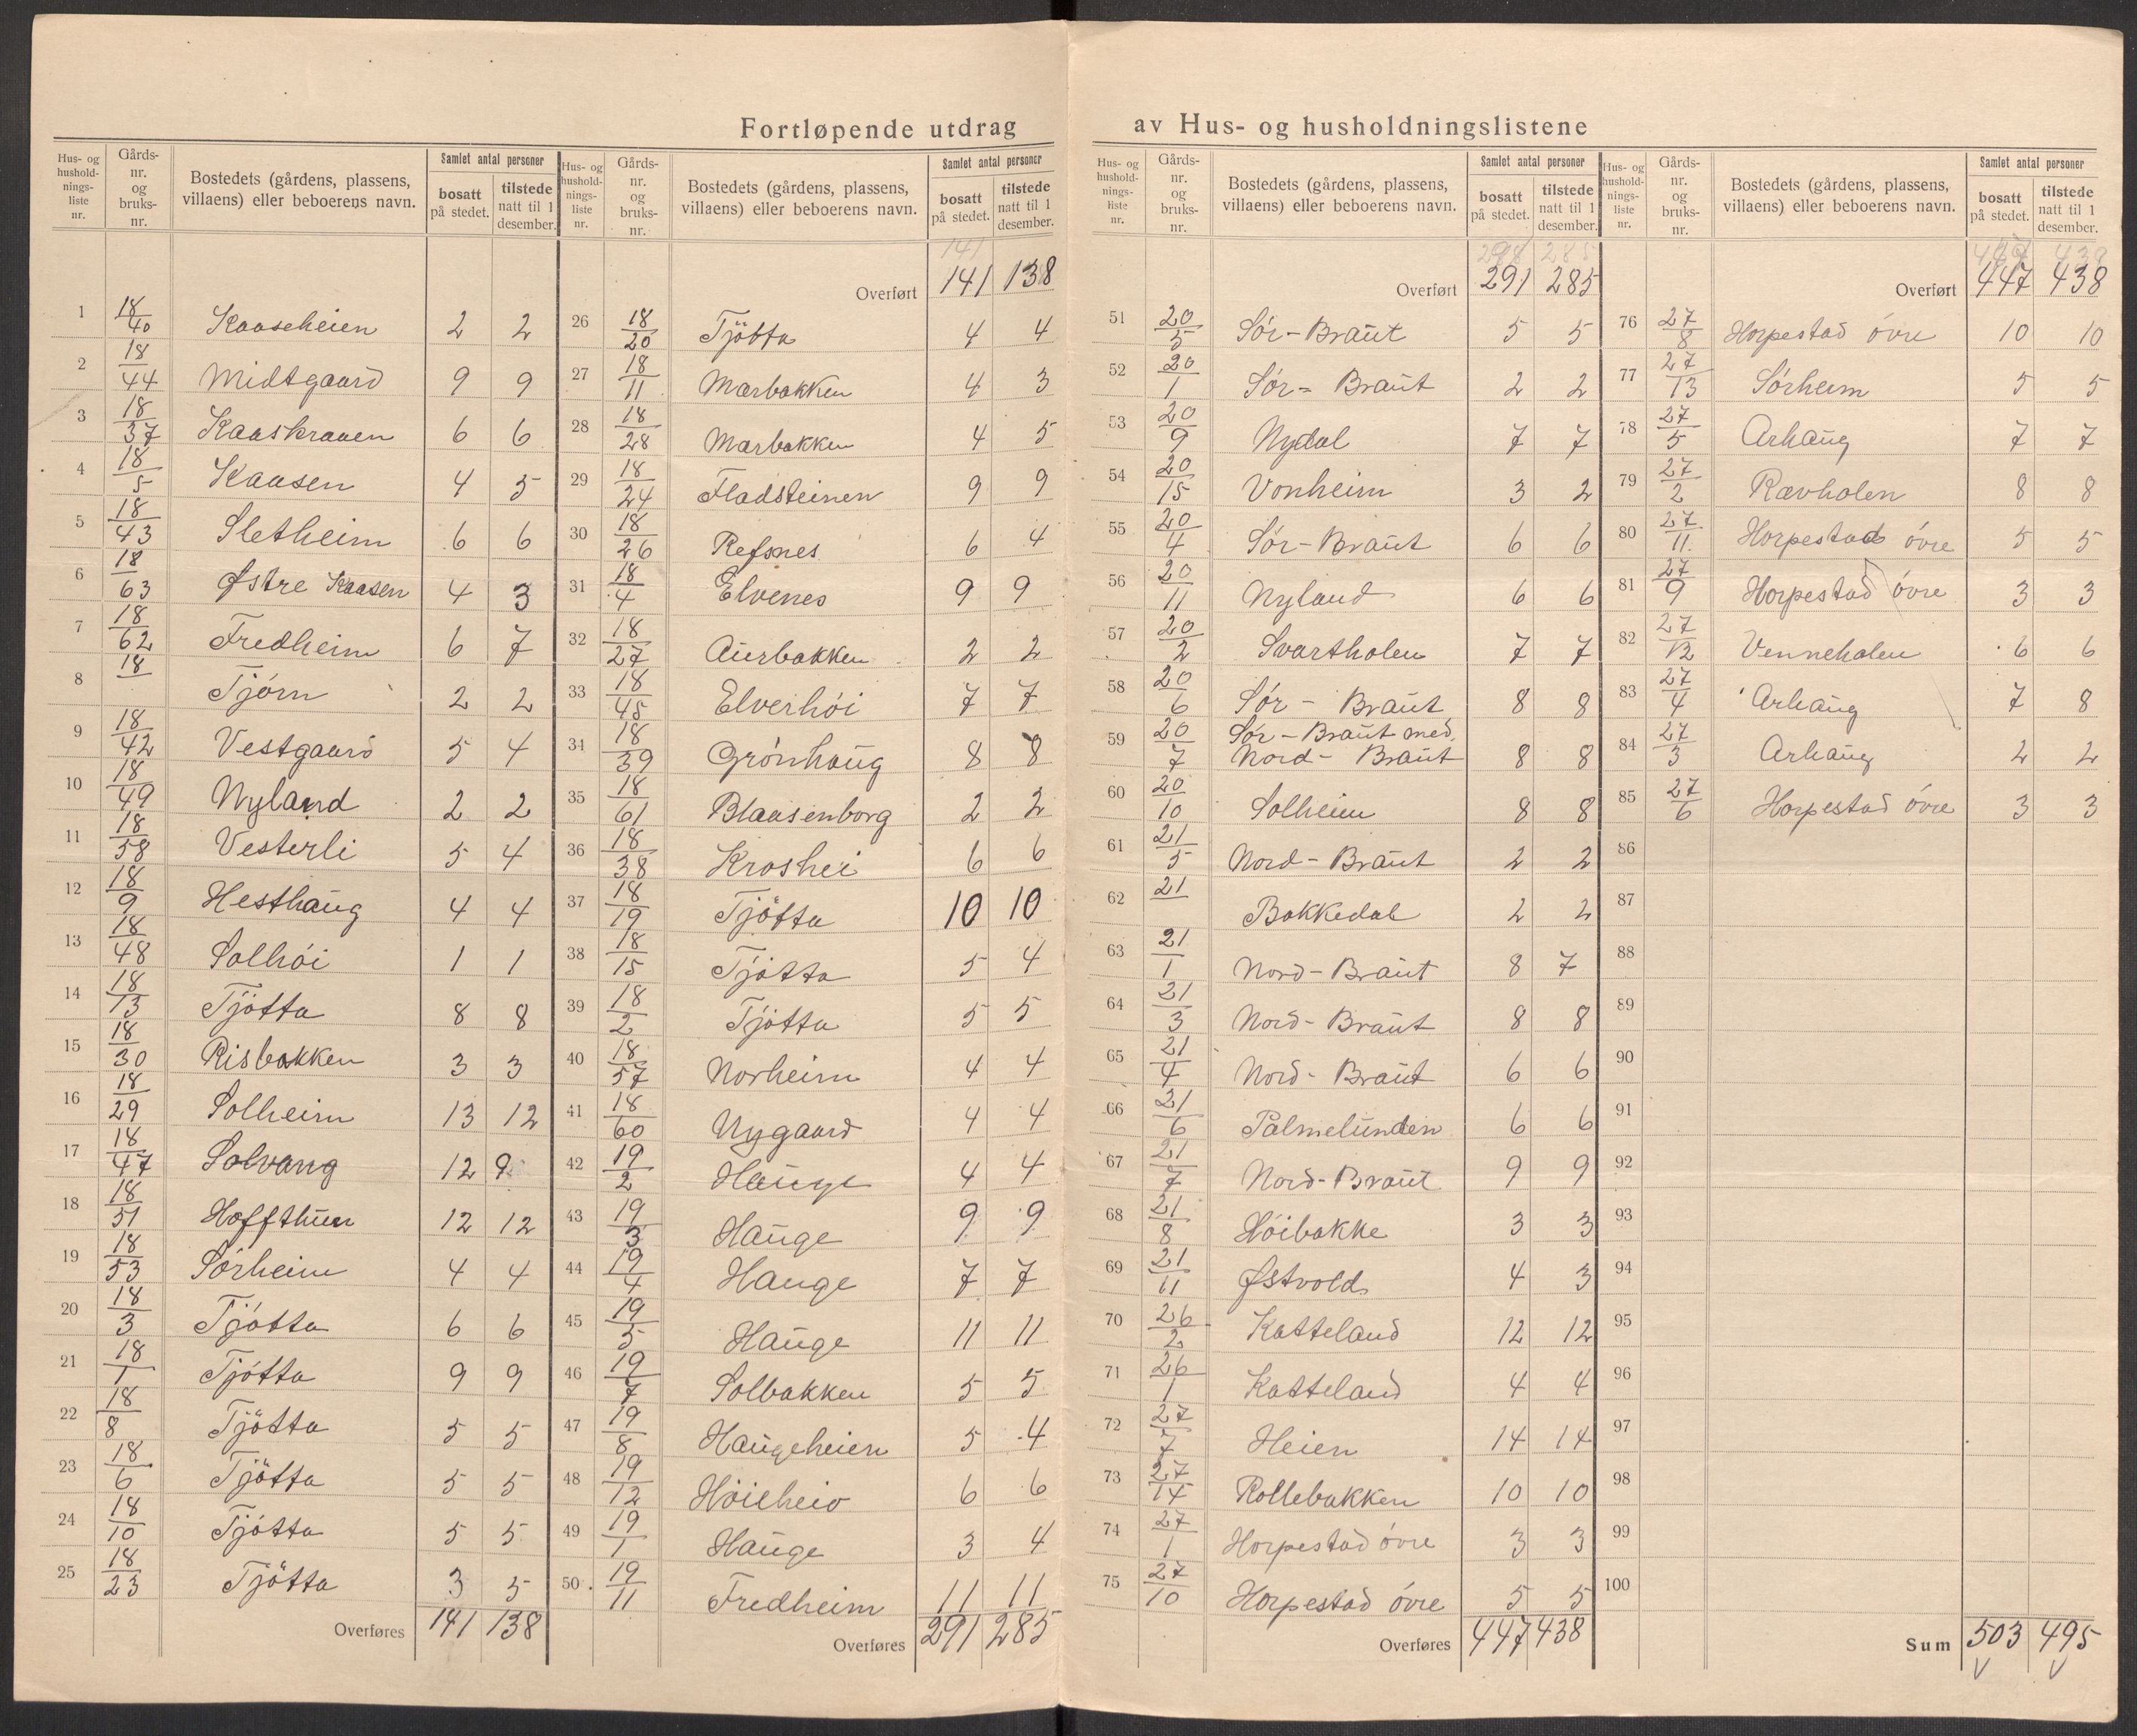 Fortløpende utdrag av Hus- og husholdningslistene
Hus- og hushold- nings- liste nr. | Gårds- nr. og bruks- nr. | Bostedets (gårdens, plassens, villaens) eller beboerens navn. | Samlet antal personer | bosatt på stedet. | tilstede natt til 1 desember.
1 18/40 Kaaseheien 2 2
2 18/44 Midtgaard 9 9
3 18/37 Kaaskraaen 6 6
4 18/5 Kaasen 4 5
5 18/43 Sletheim 6 6
6 18/63 Østre Kaasen 4 3
7 18/62 Fredheim 6 7
8 18/ Tjórn 2 2
9 18/42 Vestgaard 5 4
10 18/49 Nyland 2 2
11 18/58 Vesterli 5 4
12 18/9 Hesthaug 4 4
13 18/48 Solhói 1 1
14 18/13 Tjótta 8 8
15 18/30 Risbakken 3 3
16 18/29 Solheim 13 12
17 18/47 Solvang 12 9
18 18/51 Hoffthun 12 12
19 18/53 Sórheim 4 4
20 18/3 Tjótta 6 6
21 18/1 Tjótta 9 9
22 18/8 Tjötta 5 5
23 18/6 Tjötta 5 5
24 18/10 Tjótta 5 5
25 18/23 Tjötta 3 5
Overføres 141 138
Hus- og hushold- nings- liste nr. | Gårds- nr. og bruks- nr. | Bostedets (gårdens, plassens, villaens) eller beboerens navn. | Samlet antal personer | bosatt på stedet. | tilstede natt til 1 desember.
141
Overført 141 138
26 18/20 Tjötta 4 4
27 18/11 Marbakken 4 3
28 18/28 Marbakken 4 5
29 18/24 Fladsteinen 9 9
30 18/26 Refsnes 6 4
31 18/4 Elvenes 9 9
32 18/27 Aurbakken 2 2
33 18/45 Elverhói 7 7
34 18/39 Grónhaug 8 8
35 18/61 Blaasenborg 2 2
36 18/38 Kroshei 6 6
37 18/19 Tjötta 10 10
38 18/15 Tjótta 5 4
39 18/2 Tjótta 5 5
40 18/57 Norheim 4 4
41 18/60 Nygaard 4 4
42 19/2 Hauge 4 4
43 19/3 Hauge 9 9
44 19/4 Hauge 7 7
45 19/5 Hauge 11 11
46 19/7 Solbakken 5 5
47 19/8 Haugeheien 5 4
48 19/12 Hóiheio 6 6
49 19/1 Hauge 3 4
50 19/11 Fredheim 11 11
Overføres 291 285
Hus- og hushold- nings- liste nr. | Gårds- nr. og bruks- nr. | Bostedets (gårdens, plassens, villaens) eller beboerens navn. | Samlet antal personer | bosatt på stedet. | tilstede natt til 1 desember.
285
Overført 291 285
51 20/5 Sór-Braut 5 5
52 20/1 Sór-Braut 2 2
53 20/9 Nydal 7 7
54 20/15 Vonheim 3 2
55 20/4 Sór-Braut 6 6
56 20/11 Nyland 6 6
57 20/2 Svartholen 7 7
58 20/6 Sór-Braut 8 8
59 20/7 Sór-Braut med.
Nord-Braut 8 8
60 20/10 Solheim 8 8
61 21/5 Nord-Braut 2 2
62 21/ Bakkedal 2 2
63 21/1 Nord-Braut 8 7
64 21/3 Nord-Braut 8 8
65 21/4 Nord-Braut 6 6
66 21/6 Palmelunden 6 6
67 21/7 Nord-Braut 9 9
68 21/8 Hóibakke 3 3
69 21/11 Østvold 4 3
70 26/2 Katteland 12 12
71 26/1 Katteland 4 4
72 27/7 Heien 14 14
73 27/14 Rollebakken 10 10
74 27/1 Horpestad óvre 3 3
75 27/10 Horpestad óvre 5 5
Overføres 447 438
Hus- og hushold- nings- liste nr. | Gårds- nr. og bruks- nr. | Bostedets (gårdens, plassens, villaens) eller beboerens navn. | Samlet antal personer | bosatt på stedet. | tilstede natt til 1 desember.
438
Overført 447 438
76 27/8 Horpestad óvre 10 10
77 27/13 Sórheim 5 5
78 27/5 Arhaug 7 7
79 27/2 Ravholen 8 8
80 27/11 Horpestad óvre 5 5
81 27/9 Horpestad óvre 3 3
82 27/12 Venneholen 6 6
83 27/4 Arhaug 7 8
84 27/3 Arhaug 2 2
85 27/6 Horpestad óvre 3 3
86
87
88
89
90
91
92
93
94
95
96
97
98
99
100
Sum 503 495